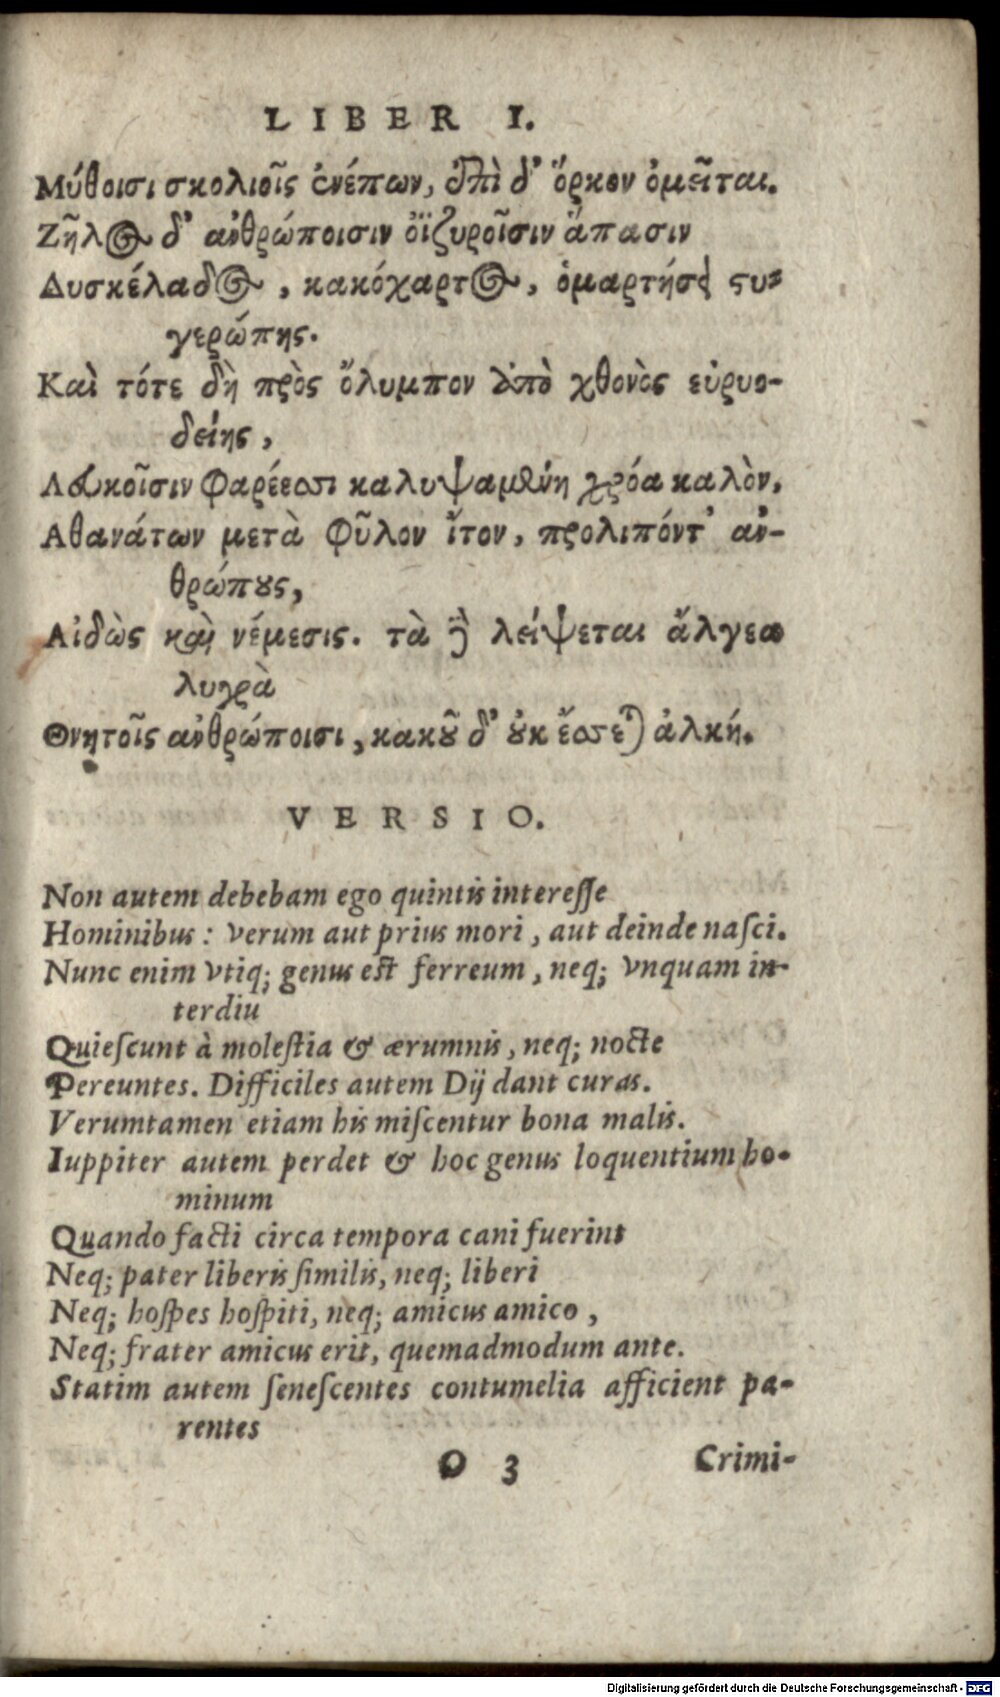 LIBER I.
Μύθοισι σκολιοῖς ἐνέπων, ἐπὶ δ' ὅρκον ὀμεῖται.
Ζῆλος δ' ἀνθρώποισιν ὀϊζυροῖσιν ἅπασιν
Δυσκέλαδος, κακόχαρτος, ὁμαρτήσει στυ-
γερώπης.
Καὶ τότε δὴ πρὸς ὄλυμπον ἀπὸ χθονὸς εὐρυο-
δείης,
Λευκοῖσιν φαρέεσσι καλυψαμένη χρόα καλὸν,
Αθανάτων μετὰ φῦλον ἴτον, προλιπόντ' ἀν-
θρώπους,
Αἰδὼς καὶ νέμεσις. τὰ δὲ λείψεται ἄλγεα
λυγρὰ
Θνητοῖς ἀνθρώποισι, κακοῦ δ' οὐκ ἔσσεται ἀλκή.
VERSIO.
Non autem debebam ego quintis interesse
Hominibus: verum aut prius mori, aut deinde nasci.
Nunc enim vtiq; genus est ferreum, neq; vnquam in-
terdiu
Quiescunt à molestia & ærumnis, neq; nocte
Pereuntes. Difficiles autem Dij dant curas.
Verumtamen etiam his miscentur bona malis.
Iuppiter autem perdet & hoc genus loquentium ho-
minum
Quando facti circa tempora cani fuerint
Neq; pater liberis similis, neq; liberi
Neq; hospes hospiti, neq; amicus amico,
Neq; frater amicus erit, quemadmodum ante.
Statim autem senescentes contumelia afficient pa-
rentes
O 3 Crimi-
Digitalisierung gefördert durch die Deutsche Forschungsgemeinschaft - DFG